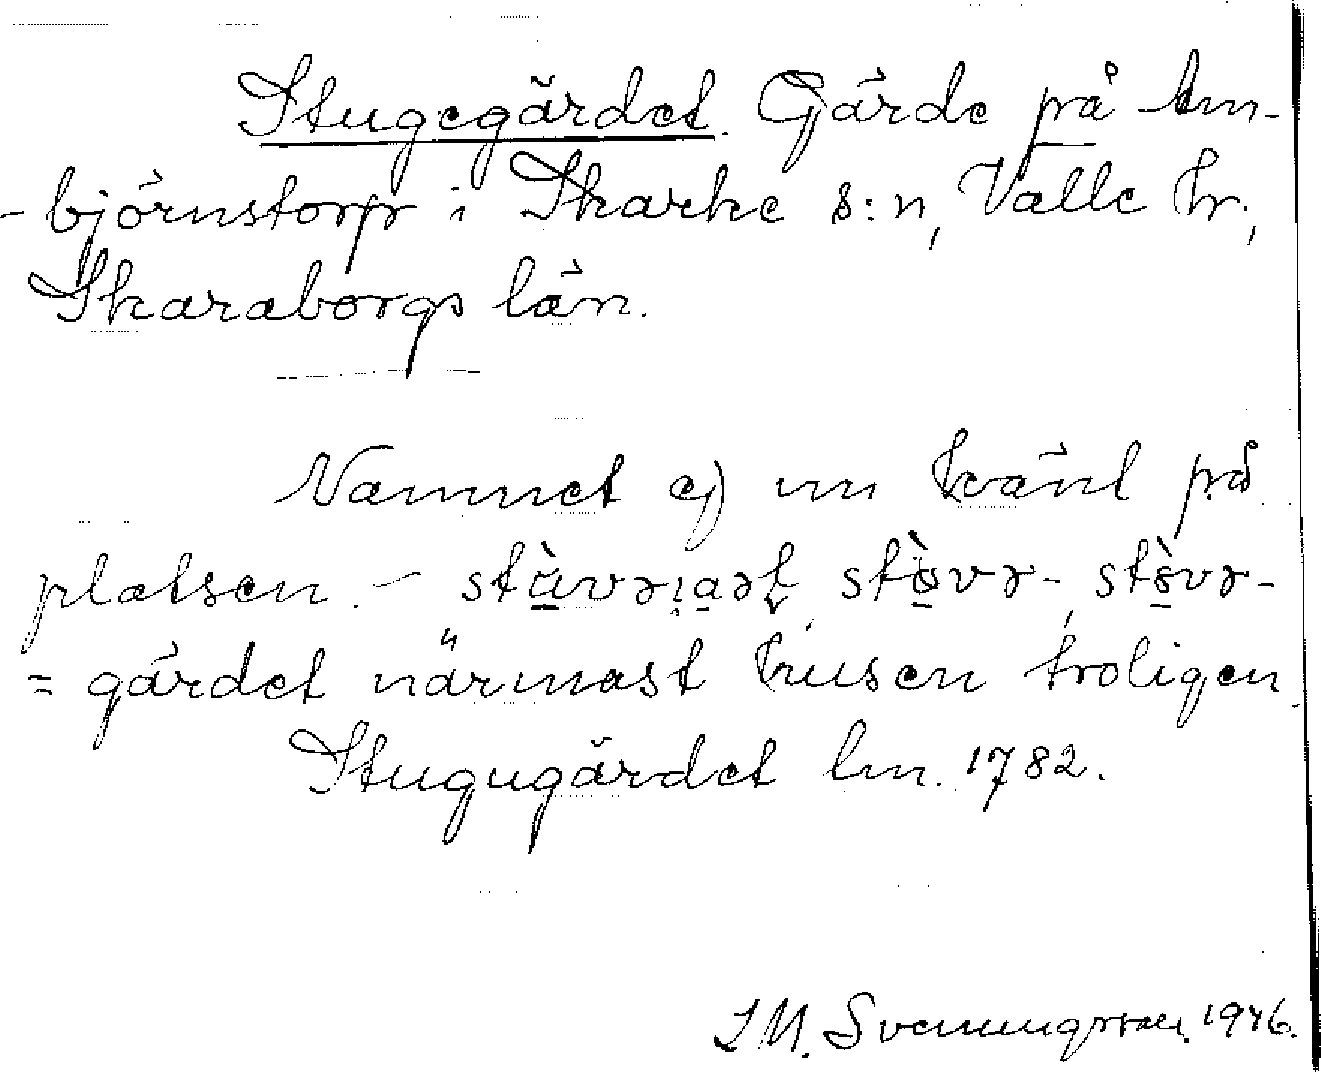 Stugegärdet. Gärde på Am-
-björnstorp i Skarke s:n, Valle hr,
Skaraborgs län.
Namnet ej nu känt på
platsen. –
= gärdet närmast husen troligen
Stugugärdet lm. 1782.
I M. Svenungsson. 1946.